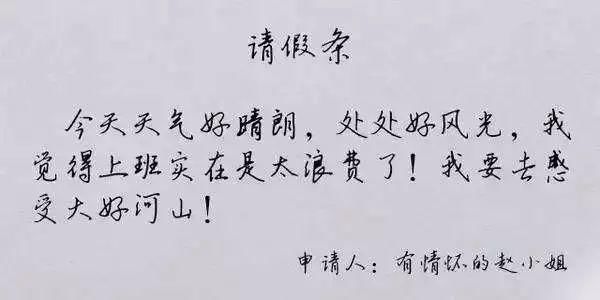 请假条
今天天气好晴朗，处处好风光，我
觉得上班实在是太浪费了！我要去感
受大好河山！
申请人：有情怀的赵小姐